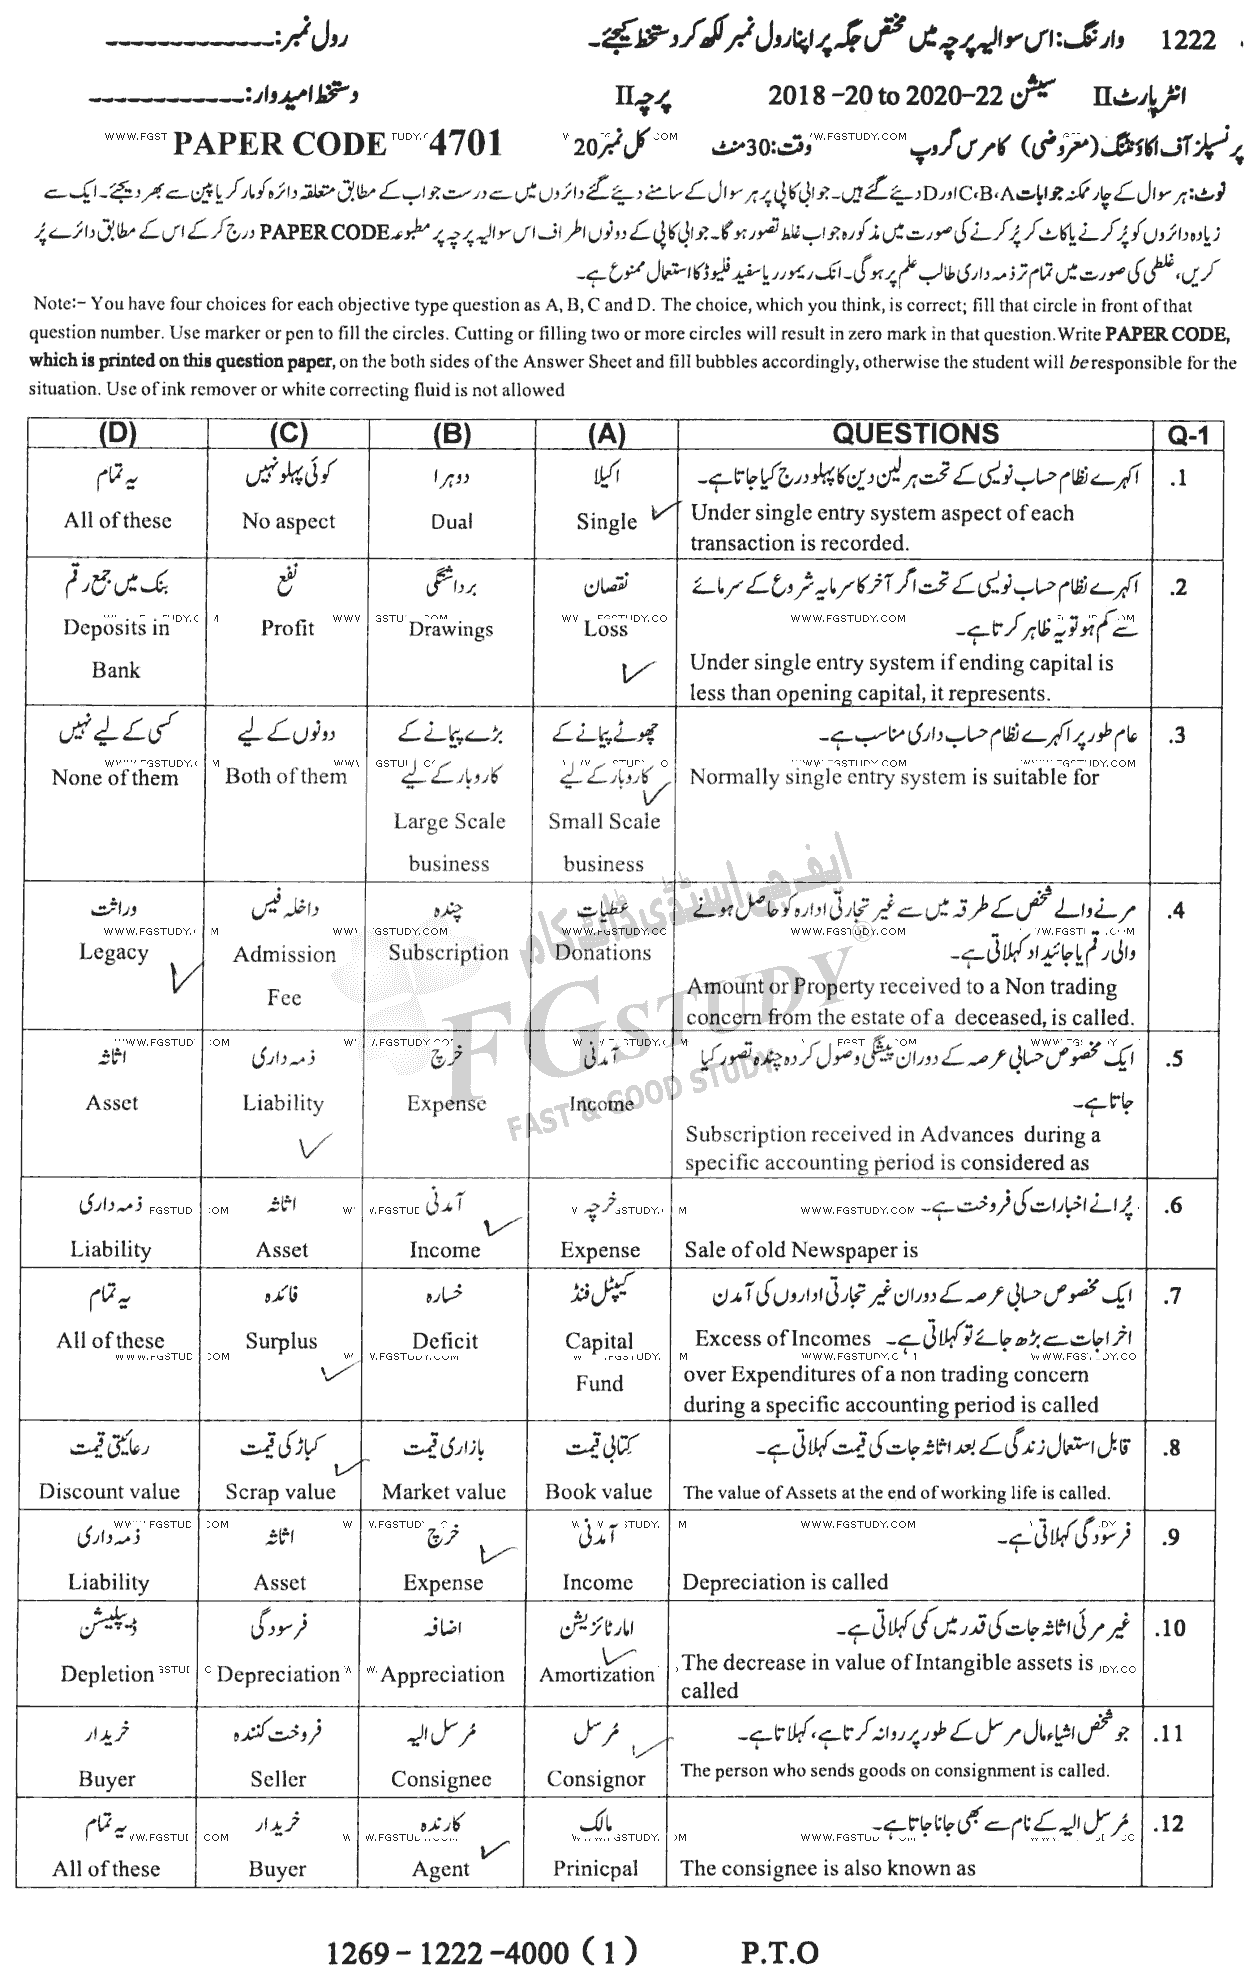 1222 وارننگ: اس سوالیہ پرچہ میں مختص جگہ پر اپنا رول نمبر لکھ کر دستخط کیجئے۔ رول نمبر: ____________
انٹر پارٹ II سیشن 2018 -20 to 2020-22 پرچہ II دستخط امیدوار: ____________
پرنسپلز آف اکاؤنٹنگ (معروضی) کامرس گروپ وقت: 30 منٹ کل نمبر 20 PAPER CODE 4701
نوٹ: ہر سوال کے چار ممکنہ جوابات C،B،A اور D دیئے گئے ہیں۔ جوابی کاپی پر ہر سوال کے سامنے دیئے گئے دائروں میں سے درست جواب کے مطابق متعلقہ دائرہ کو مارکر یا پین سے بھر دیجئے۔ ایک سے
زیادہ دائروں کو پُر کرنے یا کاٹ کر پُر کرنے کی صورت میں مذکورہ جواب غلط تصور ہو گا۔ جوابی کاپی کے دونوں اطراف اس سوالیہ پرچہ پر مطبوعہ PAPER CODE درج کر کے اس کے مطابق دائرے پُر
کریں، غلطی کی صورت میں تمام تر ذمہ داری طالب علم پر ہو گی۔ انک ریمور ر یا سفید فلیوڈ کا استعمال ممنوع ہے۔
Note:- You have four choices for each objective type question as A, B, C and D. The choice, which you think, is correct; fill that circle in front of that
question number. Use marker or pen to fill the circles. Cutting or filling two or more circles will result in zero mark in that question. Write PAPER CODE,
which is printed on this question paper, on the both sides of the Answer Sheet and fill bubbles accordingly, otherwise the student will be responsible for the
situation. Use of ink remover or white correcting fluid is not allowed
(D) (C) (B) (A) QUESTIONS Q-1
یہ تمام کوئی پہلو نہیں دوہرا اکیلا اکہرے نظام حساب نویسی کے تحت ہر لین دین کا پہلو درج کیا جاتا ہے۔ .1
All of these No aspect Dual Single Under single entry system aspect of each
transaction is recorded.
بنک میں جمع رقم نفع برداشتگی نقصان اکہرے نظام حساب نویسی کے تحت اگر آخر کا سرمایہ شروع کے سرمائے .2
سے کم ہو تو یہ ظاہر کرتا ہے۔
Deposits in Profit Drawings Loss Under single entry system if ending capital is
Bank less than opening capital, it represents.
کسی کے لیے نہیں دونوں کے لیے بڑے پیمانے کے چھوٹے پیمانے کے عام طور پر اکہرے نظام حساب داری مناسب ہے۔ .3
کاروبار کے لیے کاروبار کے لیے
None of them Both of them Normally single entry system is suitable for
Large Scale Small Scale
business business
وراثت داخلہ فیس چندہ عطیات مرنے والے شخص کے طرقہ میں سے غیر تجارتی ادارہ کو حاصل ہونے .4
والی رقم یا جائیداد کہلاتی ہے۔
Legacy Admission Subscription Donations Amount or Property received to a Non trading
Fee concern from the estate of a deceased, is called.
اثاثہ ذمہ داری خرچ آمدنی ایک مخصوص حسابی عرصہ کے دوران پیشگی وصول کردہ چندہ تصور کیا .5
جاتا ہے۔
Asset Liability Expense Income Subscription received in Advances during a
specific accounting period is considered as
ذمہ داری اثاثہ آمدنی خرچہ پُرانے اخبارات کی فروخت ہے۔ .6
Liability Asset Income Expense Sale of old Newspaper is
یہ تمام فائدہ خسارہ کیپٹل فنڈ ایک مخصوص حسابی عرصہ کے دوران غیر تجارتی اداروں کی آمدن .7
اخراجات سے بڑھ جائے تو کہلاتی ہے۔ Excess of Incomes
All of these Surplus Deficit Capital over Expenditures of a non trading concern
Fund during a specific accounting period is called
رعائیتی قیمت کباڑ کی قیمت بازاری قیمت کتابی قیمت قابل استعمال زندگی کے بعد اثاثہ جات کی قیمت کہلاتی ہے۔ .8
Discount value Scrap value Market value Book value The value of Assets at the end of working life is called.
ذمہ داری اثاثہ خرچ آمدنی فرسودگی کہلاتی ہے۔ .9
Liability Asset Expense Income Depreciation is called
ڈیپلیشن فرسودگی اضافہ امارٹائزیشن غیر مرئی اثاثہ جات کی قدر میں کمی کہلاتی ہے۔ .10
Depletion Depreciation Appreciation Amortization The decrease in value of Intangible assets is
called
خریدار فروخت کنندہ مُرسل الیہ مُرسل جو شخص اشیاء مال مرسل کے طور پر روانہ کرتا ہے، کہلاتا ہے۔ .11
Buyer Seller Consignee Consignor The person who sends goods on consignment is called.
یہ تمام خریدار کارندہ مالک مُرسل الیہ کے نام سے بھی جانا جاتا ہے۔ .12
All of these Buyer Agent Prinicpal The consignee is also known as
ایف جی اسٹڈی ڈاٹ کام
FGSTUDY
FAST & GOOD STUDY
WWW.FGSTUDY.COM
1269 – 1222 -4000 ( 1 ) P.T.O